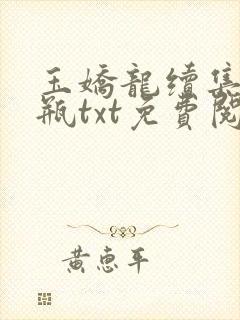 玉嬌龍續集
瓶txt免費閱
黃惠平